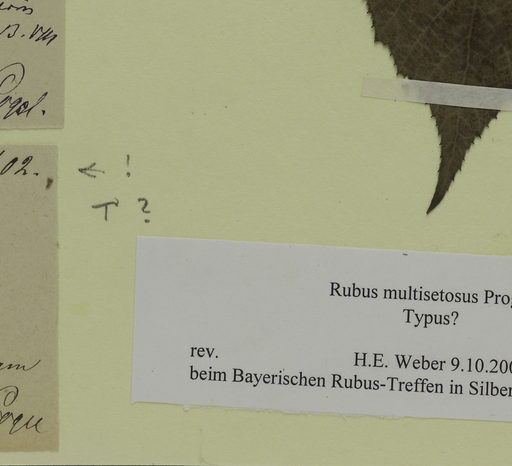 02.
← !
T ?
Rubus multisetosus Prog
Typus?
rev.
H.E. Weber 9.10.200
beim Bayerischen Rubus-Treffen in Silber